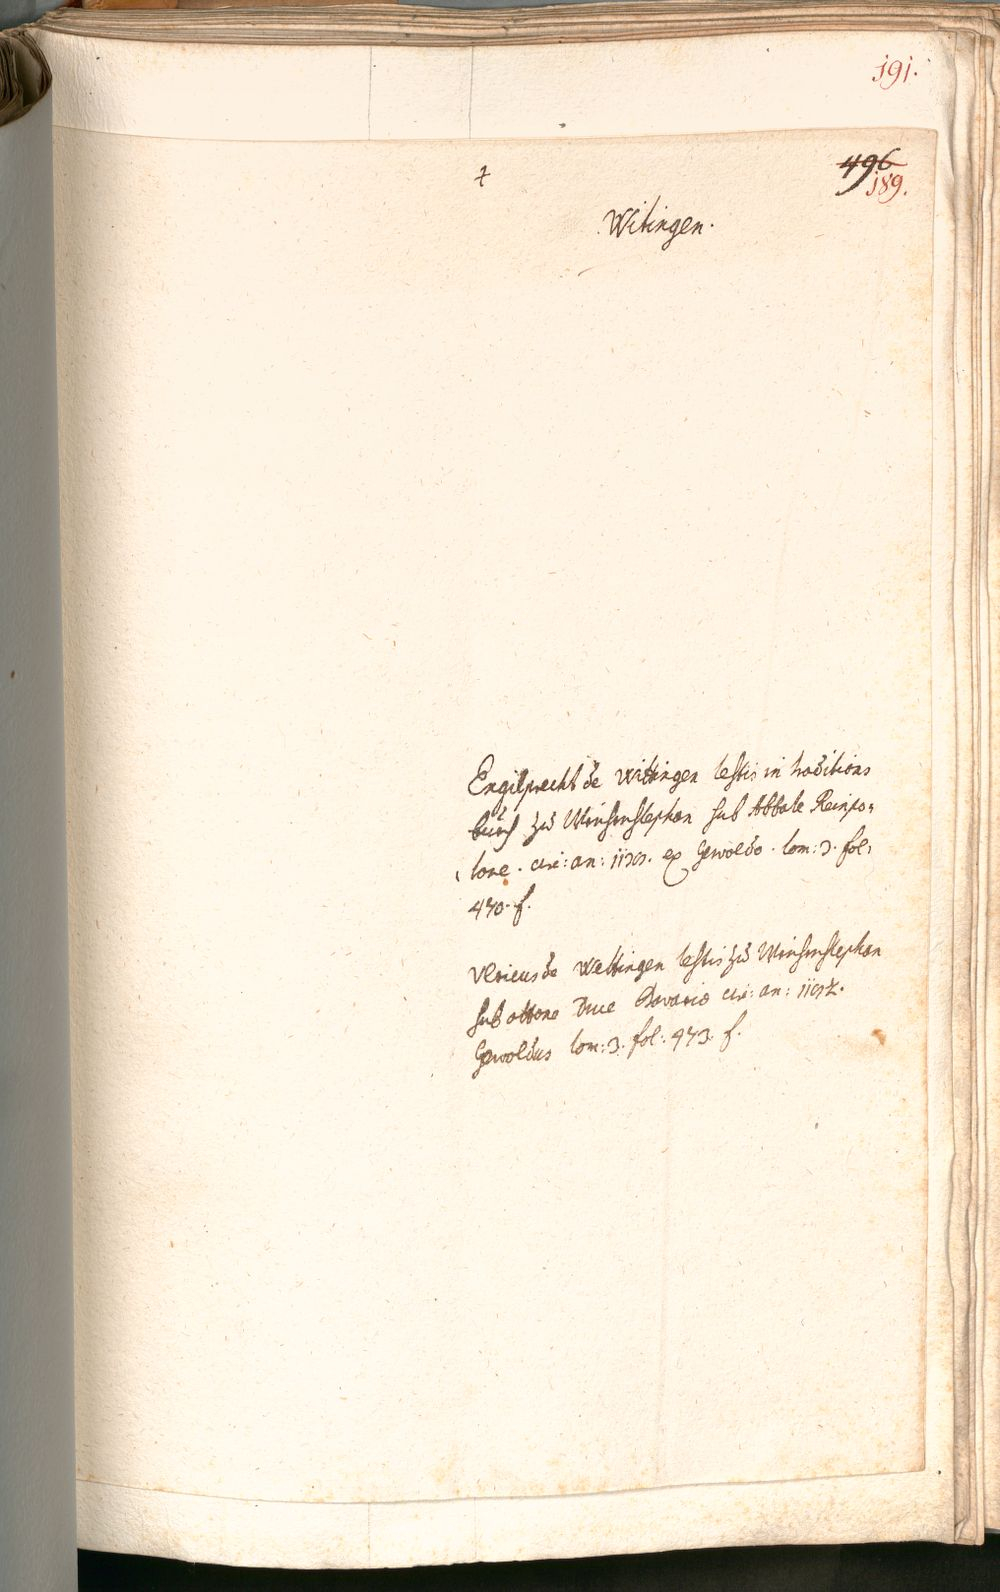 191.
496
189.
‡
Witingen.
Engilprecht de Wittingen testis in traditions
buech zu Weihensstephan sub Abbate Reinpo¬
tone. circ: an: ex Gewoldo. tom: 3. fol:
470. f.
Vlricus de Wettingen testis zu Weihensstephan
sub ottone Duce Bavariæ circ: an:
Gewoldus tom: 3. fol: 473. f.